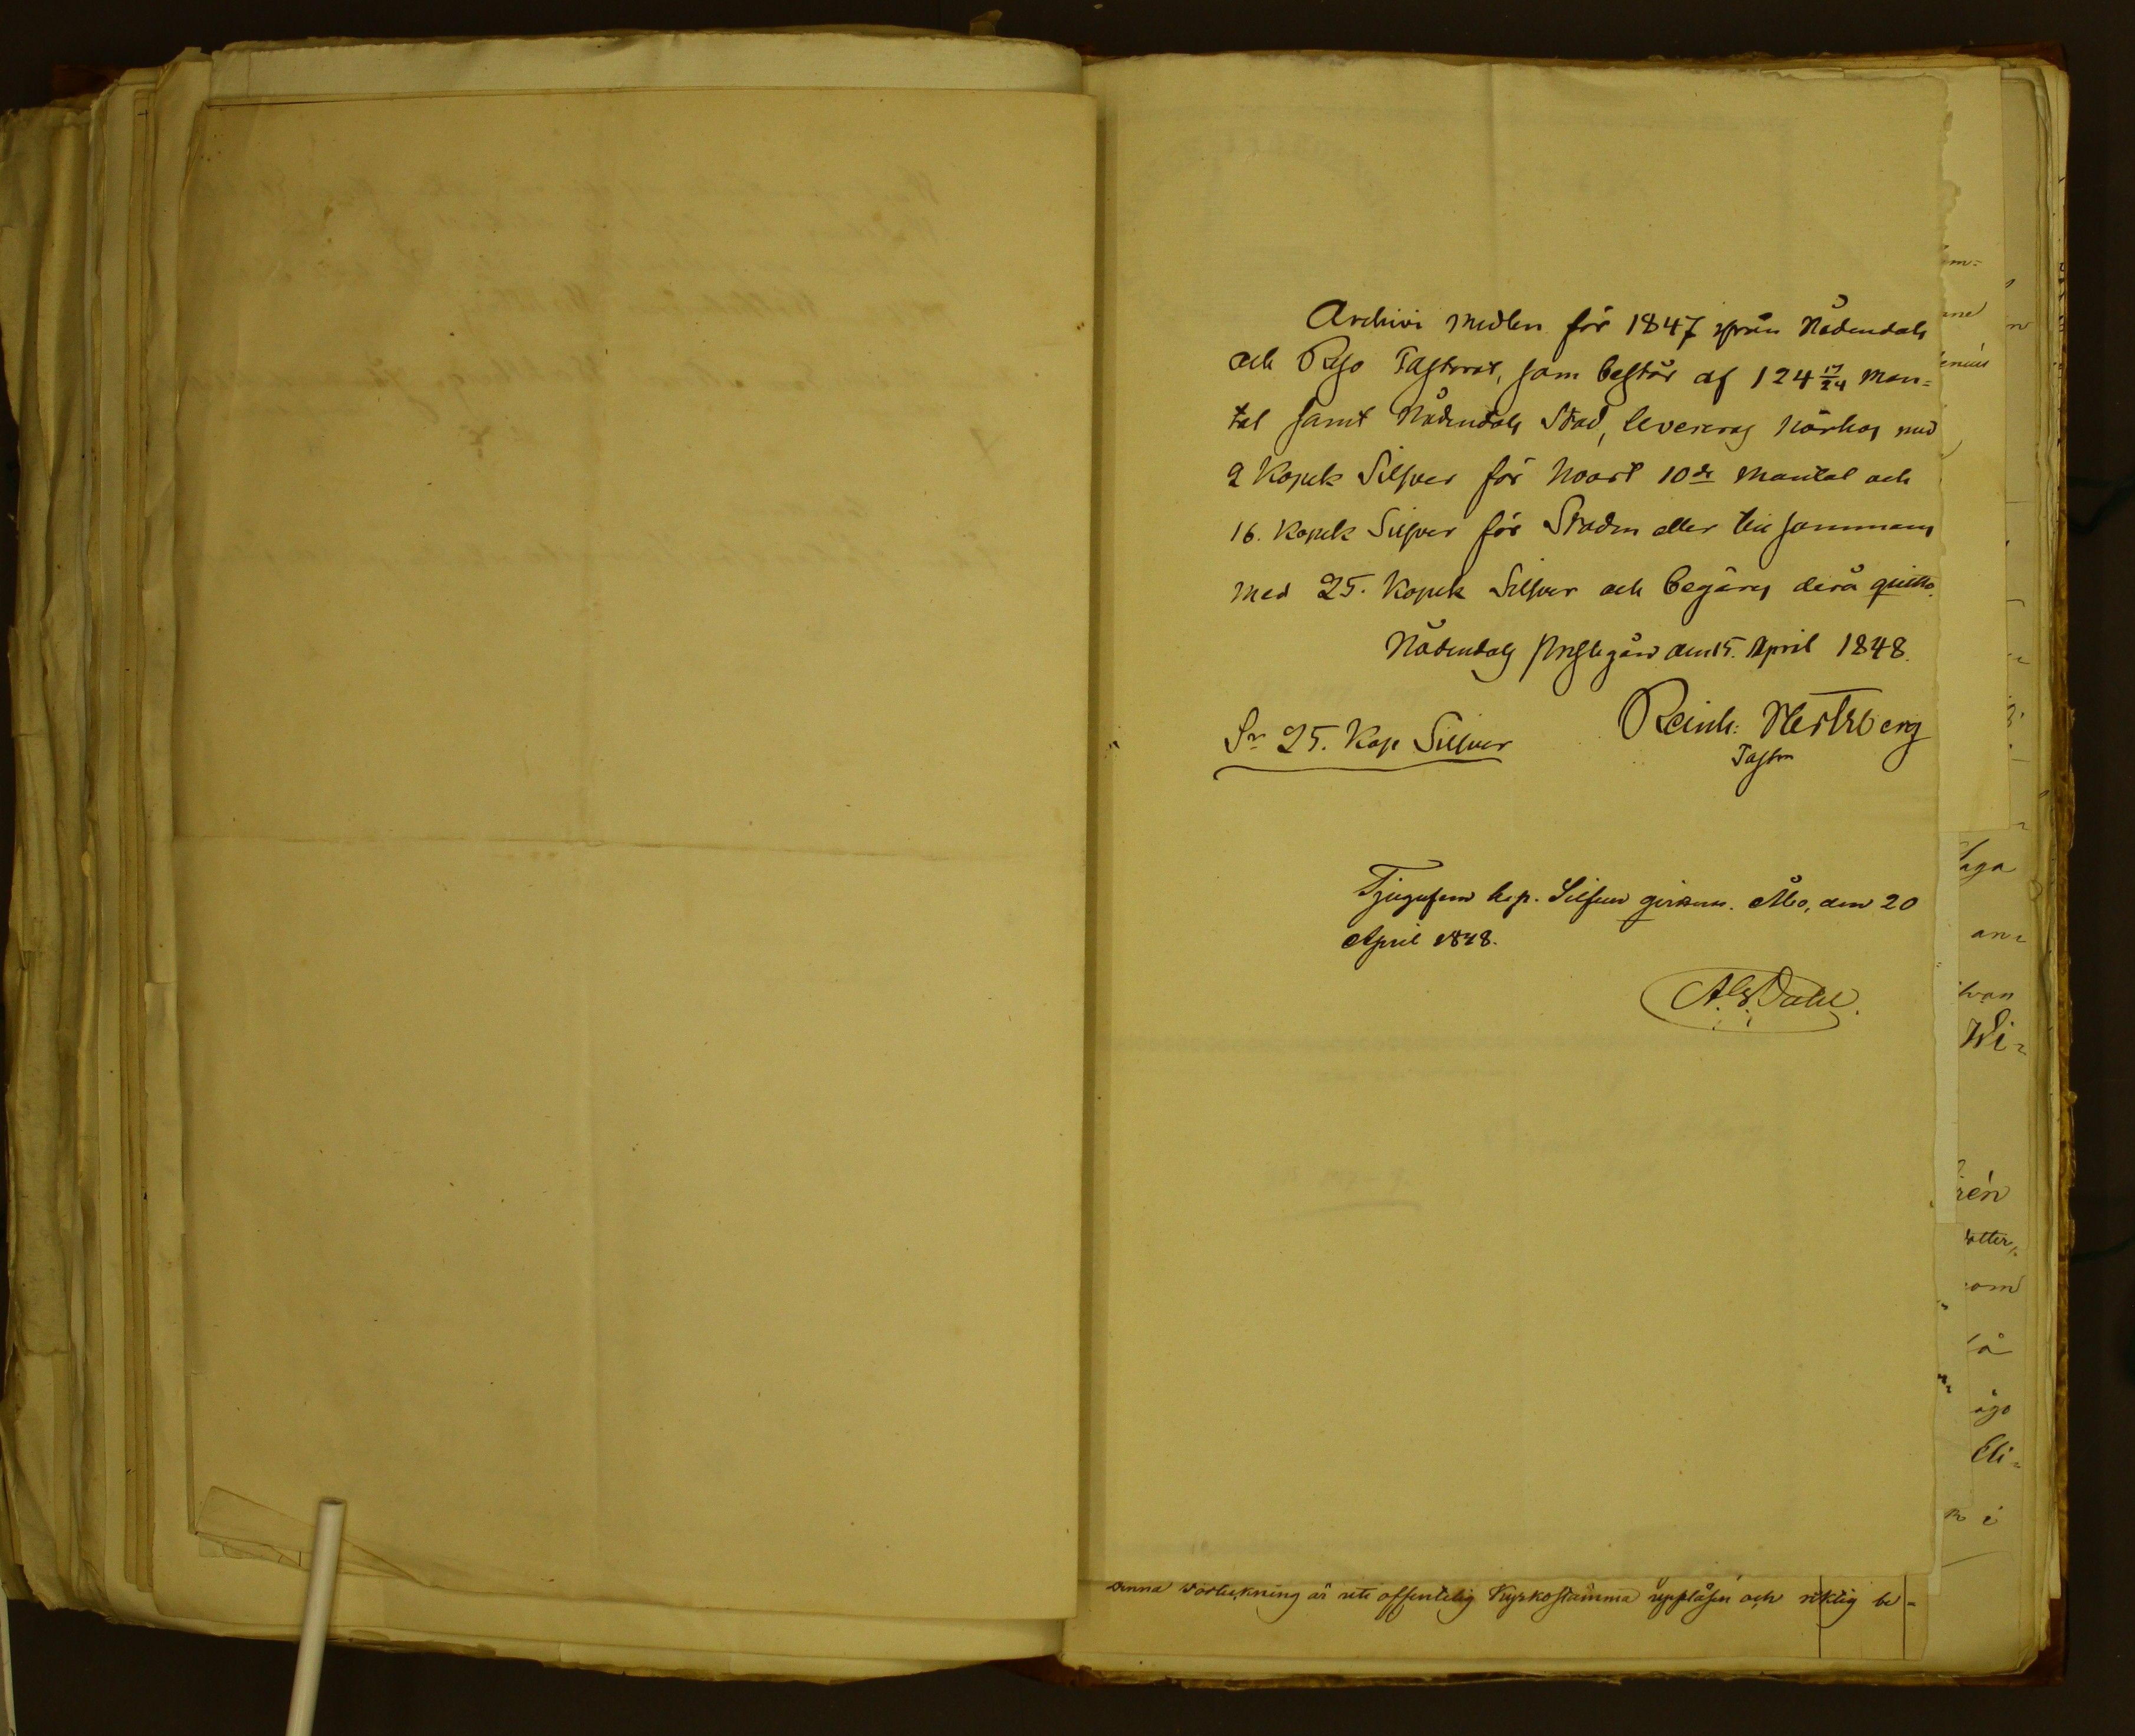 Archivi medlen för 1847 ifrån Nådendals
och Reso Pastorat, som består af 124 17/24 Man=
tal samt Nådendals Stad, levereras härhos med
2 Kopek Silfver för hvart 10de Mantal och
16. Kopek Silfver för Staden eller till sammans
med 25. Kopek Silfver och begäres derå quitto.
Nådendals Prestegård den 15. April 1848.
Reinh: Hertzberg
Pastor
Sr 25. Kop Silfver
Tjugufem kop. Silfver qvitteras. Åbo, den 20
April 1848.
Dahl.
Denna Förtekning är uti offentelig Kyrkostämma uppläsen och riktig be-
laga
an=
Wi=
rén
om
Eli=